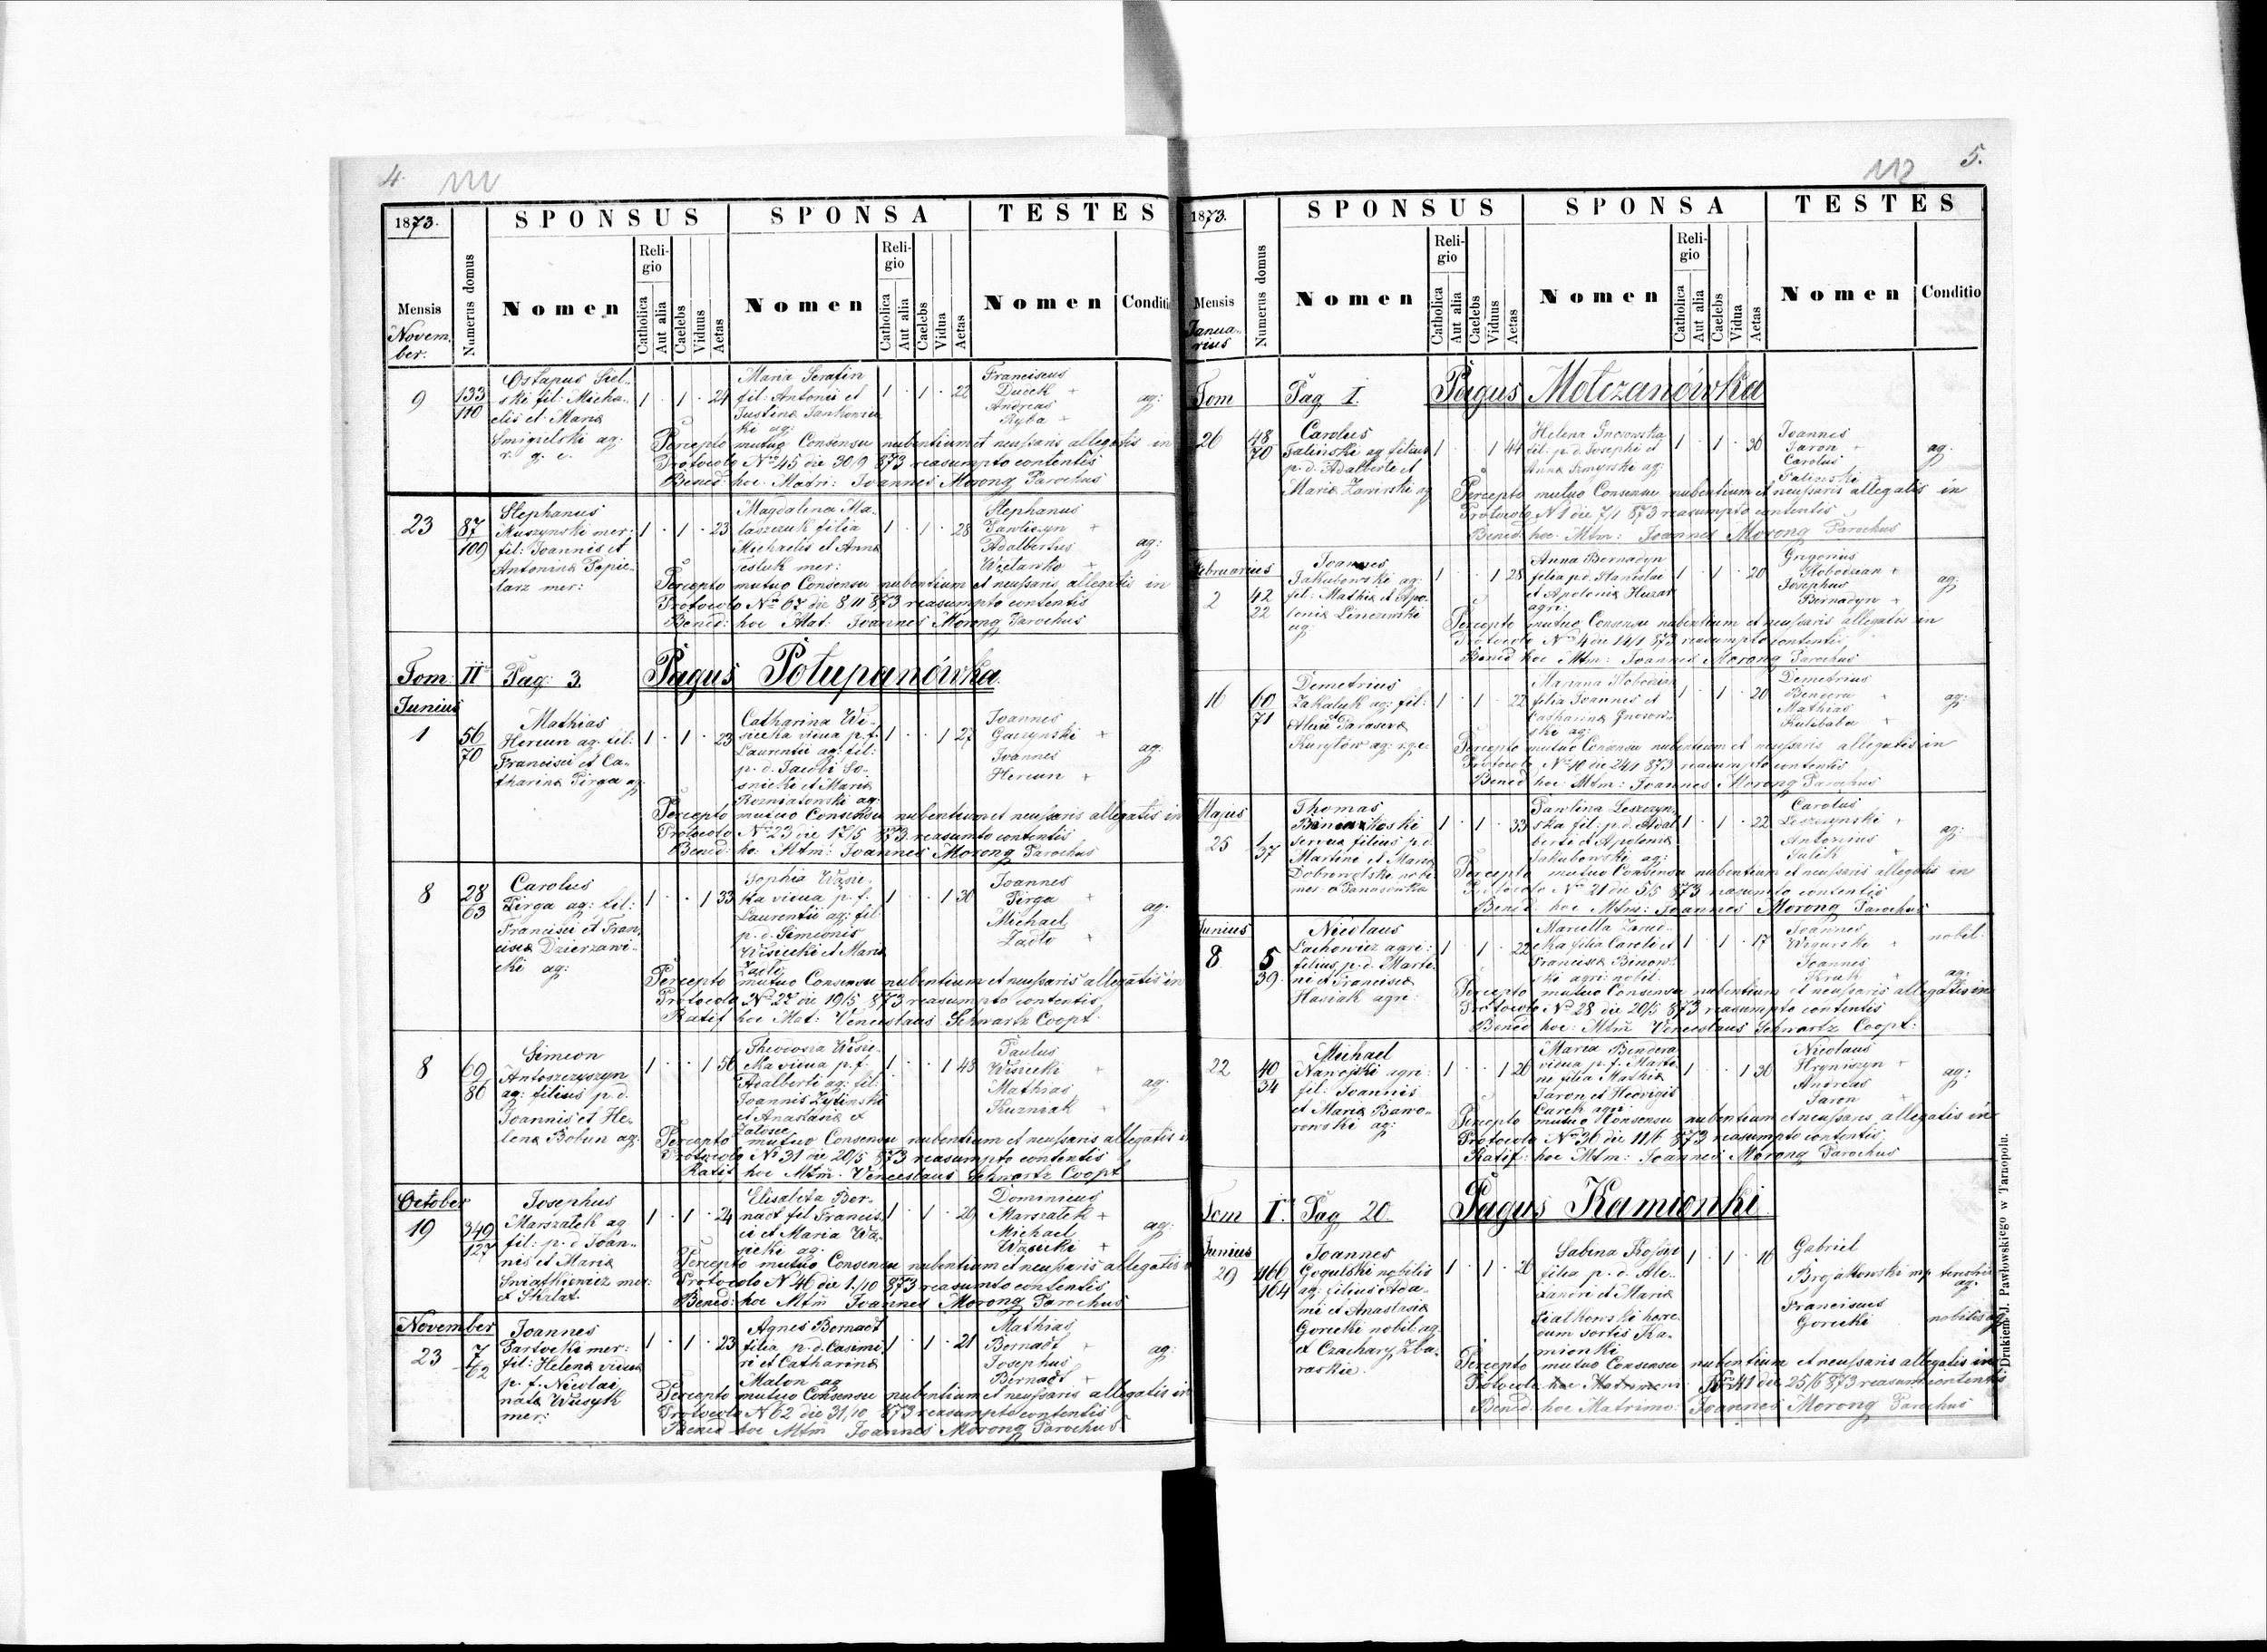 4.
1873.
SPONSUS
SPONSA
TESTES
Mensis
Numerus domus
Nomen
Religio
Catholica
Aut alia
Caelebs
Viduus
Aetas
Nomen
Religio
Catholica
Aut alia
Caelebs
Vidua
Aetas
Nomen
Conditi
Novem.
ber.
9
133
110
Ostapus Siel-
ski fil: Micha-
elis et Mariæ
Smigielski ag:
r. g. c.
1 · 1 · 24
Maria Serafin
fil: Antonii et
Justinæ Jankows-
ki ag:
1 · 1 · 22
Franciscus
Ducek +
Andreas
Ryba +
ag:
Percepto mutuo Consensu nubentium et neuſsaris allegatis in
Protocolo No 45 die 30/9 873 reasumpto contentis
Bened: hoc Matri: Joannes Morong Parochus
23
87
109
Stephanus
Muszynski mer:
fil: Joannis et
Antoninæ Popie-
larz mer:
1 · 1 · 23
Magdalena Ma-
laszczuk filia
Michaelis et Annæ
Tesluk mer:
1 · 1 · 28
Stephanus
Pawliczyn +
Adalbertus
Wzelawko +
ag:
Percepto mutuo Consensu nubentium et neuſsaris allegatis in
Protocolo No 67 die 8/11 873 reasumpto contentis
Bened: hoc Mat: Joannes Morong Parochus
Tom: II Pag: 3. Pagus Połupanówka
Junius
1
56
70
Mathias
Hercun ag: fil:
Francisci et Ca-
tharinæ Pirga ag:
1 · 1 · 23
Catharina Wi-
siecka vidua p. f.
Laurentii ag: fil:
p. d. Jacobi So-
snicki et Mariæ
Rozniatowski ag:
1 · · 1 27
Joannes
Gaczynski +
Joannes
Hercun +
ag:
Percepto mutuo Consensu nubentium et neuſsaris allegatis in
Protocolo No 23 die 17/5 873 reasumto contentis
Bened: ho: Mtm: Joannes Morong Parochus
8
28
63
Carolus
Pirga ag: fil:
Francisci et Fran-
ciscæ Dzierzawi-
cki ag:
1 · · 1 33
Sophia Wisie-
cka vidua p. f.
Laurentii ag: fil:
p. d. Simionis
Wisiecki et Mariæ
Zadło
1 · · 1 30
Joannes
Pirga +
Michael
Zadło +
ag:
Percepto mutuo Consensu nubentium et neuſsaris allegatis in
Protocolo No 27 die 19/5 873 reasumpto contentis
Ratif hoc Mat: Venceslaus Schwartz Coopt:
8
69
86
Simeon
Antoszczyszyn
ag: filius p. d.
Joannis et He-
lenæ Bobun ag:
1 · · 1 56
Theodosia Wisie-
cka vidua p. f.
Adalberti ag: fil:
Joannis Zytinski
et Anastasiæ ex
Załosce
1 · · 1 48
Paulus
Wisiecki +
Mathias
Kuzniak +
ag:
Percepto mutuo Consensu nubentium et neuſsaris allegatis i
Protocolo No 31 die 20/5 873 reasumpto contentis
Ratif hoc Mtm: Venceslaus Schwartz Coopt
October
19
349
127
Josephus
Marszałek ag
fil: p. d Joan-
nis et Mariæ
Swiatkiewicz mer:
ex Skałat.
1 · 1 · 24
Elisabeta Ber-
nact fil Francis-
ci et Maria Wą-
sicki ag:
1 · 1 · 20
Dominicus
Marszałek +
Michael
Wąsicki +
ag:
Percepto mutuo Consensu nubentium et neuſsaris allegatis
Protocolo N 46 die 1/10 873 reasumto contentis
Bened: hoc Mtm Joannes Morong Parochus
November
23
7
62
Joannes
Partocki mer:
fil: Helenæ vidua
p. f. Nicolai
natæ Wusyk
mer:
1 · 1 · 23
Agnes Bernadt
filia p. d. Casimi-
ri et Catharinæ
Malon ag
1 · 1 · 21
Mathias
Bernadt +
Josephus
Bernadt +
ag:
Percepto mutuo Consensu nubentium et neuſsaris allegatis in
Protocolo N 62 die 31/10 873 reasumpto contentis
Bened hoc Mtm Joannes Morong Parochus
112
5.
1873.
SPONSUS
SPONSA
TESTES
Mensis
Numerus domus
Nomen
Religio
Catholica
Aut alia
Caelebs
Viduus
Aetas
Nomen
Religio
Catholica
Aut alia
Caelebs
Vidua
Aetas
Nomen
Conditio
Janua-
rius
Tom Pag I. Pagus Mołczanówka
26
48
70
Carolus
Falinski ag filius
p. d. Adalberti et
Mariæ Zawirski ag
1 · · 1 44
Helena Gnosowska
fil: p. d. Josephi et
Annæ Szmyrski ag:
1 · 1 · 36
Joannes
Jaron +
Carolus
Falinski +
ag:
Percepto mutuo Consensu nubentium et neuſsaris allegatis in
Protocolo N 1 die 7/1 873 reasumpto contentis
Bened: hoc Mtm: Joannes Morong Parochus
Februarius
2
42
22
Joannes
Jakubowski ag:
fil: Mathiæ et Apo-
loniæ Linczewski
ag:
1 · · 1 28
Anna Bernadyn
filia p.d. Stanislai
et Apoloniæ Huzar
agri:
1 · 1 · 20
Gregorius
Słobodzian +
Josephus
Bernadyn +
ag:
Percepto mutuo Consensu nubentium et neuſsaris allegatis in
Protocolo No 4 die 14/1 873 reasumpto contentis
Bened hoc Mtm: Joannes Morong Parochus
16
60
71
Demetrius
Zakaluk ag: fil:
Alexii et Parascevæ
Kuryłow ag: r.g.c.
1 · 1 · 22
Maryana Słobodzian
filia Joannis et
Catharinæ Gnosows-
ki ag:
1 · 1 · 20
Demetrius
Bendera +
Mathias
Kulbaba +
ag:
Percepto mutuo Consensu nubentium et neuſsaris allegatis in
Protocolo No 10 die 24/1 873 reasumpto contentis
Bened hoc Mtm: Joannes Morong Parochus
Majus
25
1
37
Thomas
Servus filius p.d.
Martini et Mariæ
Dobrowolski
1 · 1 · 33
Paulina Leszczyn-
ska fil: p.d. Adal-
berti et Apoloniæ
Jakubowski ag:
1 · 1 · 22
Carolus
Leszczynski +
Antonius
Julik +
ag:
Percepto mutuo Consensu nubentium et neuſsaris allegatis in
Protocolo No 21 die 5/5 873 reasumto contentis
Bened: hoc Mtm: Joannes Morong Parochus
Junius
8
5
39
Nicolaus
Lachowicz agri:
filius p. d. Marti-
ni et Franciscæ
Hasiak agri:
1 · 1 · 22
Marcella Zarud-
cka filia Caroli et
Franciscæ Binows-
ki agri: nobil:
1 · 1 · 17
Joannes
Wegurski +
Joannes
Kruk +
nobil:
ag:
Percepto mutuo Consensu nubentium et neuſsaris allegatis in
Protocolo No 28 die 20/5 873 reasumpto contentis
Bened hoc: Mtm Venceslaus Schwartz Coopt:
22
40
34
Michael
Nanojski agri:
fil: Joannis
et Mariæ Bawo-
rowski ag:
1 · · 1 26
Maria Bendera
vidua p. f. Marti-
ni filia Mathiæ
Jaron et Hedvigis
Curek agri:
1 · · 1 30
Nicolaus
Hryniszyn +
Andreas
Jaron +
ag:
Percepto mutuo Consensu nubentium et neuſsaris allegatis in
Protocolo No 36 die 11/6 873 reasumpto contentis
Ratif: hoc Mtm: Joannes Morong Parochus
Tom I. Pag 20. Pagus Kamionki
Junius
29
466
164
Joannes
Gogulski nobilis
ag: filius Ada-
mi et Anastasiæ
Gorecki nobil: ag:
ex Czachary Zba-
raskie.
1 · 1 · 26
Sabina
filia p. d. Ale-
xandri et Mariæ
Piatkowski here-
dum sortis Ka-
mionki
1 · 1 · 16
Gabriel
Brojakowski mp
ag:
Franciscus
Gorecki
nobilis ag
Percepto mutuo Consensu nubentium et neuſsaris allegatis in
Protocolo hoc Matrimoni No 41 die 25/6 873 reasum contentis
Bened: hoc Matrimo: Joannes Morong Parochus
Drukiem J. Pawłowskiego w Tarnopolu.